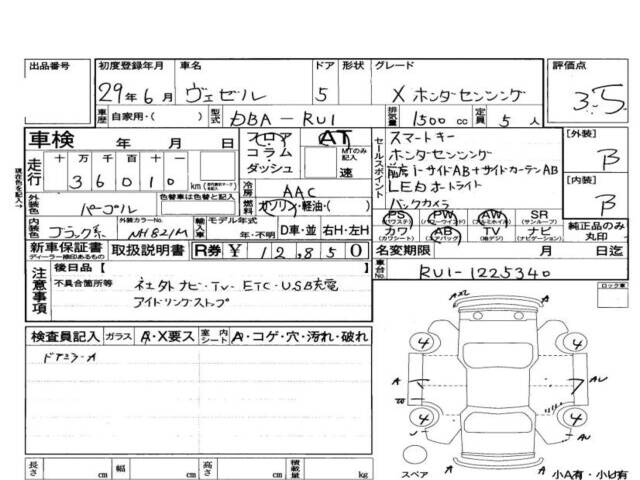 出品番号 初度登録年月 車名 ドア 形状 グレード 評価点
29年6月 ヴェゼル 5 X ホンダセンシング 3.5
車歴 自家用・( ) 型式 DBA-RU1 排気量 1500cc 定員 5人
車検 年 月 日 フロア AT セールスポイント スマートキー [外装]
コラム MTのみ記入 ホンダセンシング B
走行 十 万 千 百 十 ダッシュ 速
36010 km 冷房 AAC LEDオートライト [内装]
外装色 色替車は色替と記入 燃料 ガソリン・軽油・( ) バックカメラ B
パープル
内装色 ブラック系 外装カラーNo. 輸入車 モデル年式 年・不明 D車・並 右H・左H
PS (パワステ) PW (パワーウインド) AW (アルミホイル) SR (サンルーフ) 純正品のみ丸印
カワ (カワシート) AB (エアバッグ) TV (地デジ) ナビ (ナビゲーション)
新車保証書 ディーラー捺印あるもの 取扱説明書 R券 ¥12,850 名変期限 月 日迄
注意事項 後日品【 車台No. RU1-1225340
不具合箇所等 ナビ・TV・ETC・USB充電 ロック車
アイドリングストップ
検査員記入 ガラス A・X要ス 室内シート A・コゲ・穴・汚れ・破れ
ドアミラーA
A A
4 4
A AU
W
4 4
スペア
長さ cm 幅 cm 高さ cm 積載量 kg 小A有・小U有